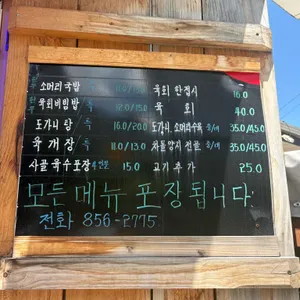 소머리국밥/특 육회 한접시 16.0
육회비빔밥/특 12.0/15.0 육 회 40.0
도가니탕/특 16.0/20.0 도가니, 소머리수육 35.0/45.0
육개장/특 11.0/13.0 차돌양지 전골 35.0/45.0
사골 육수 포장 15.0 고기 추가 25.0
모든 메뉴 포장 됩니다
전화 856-2775